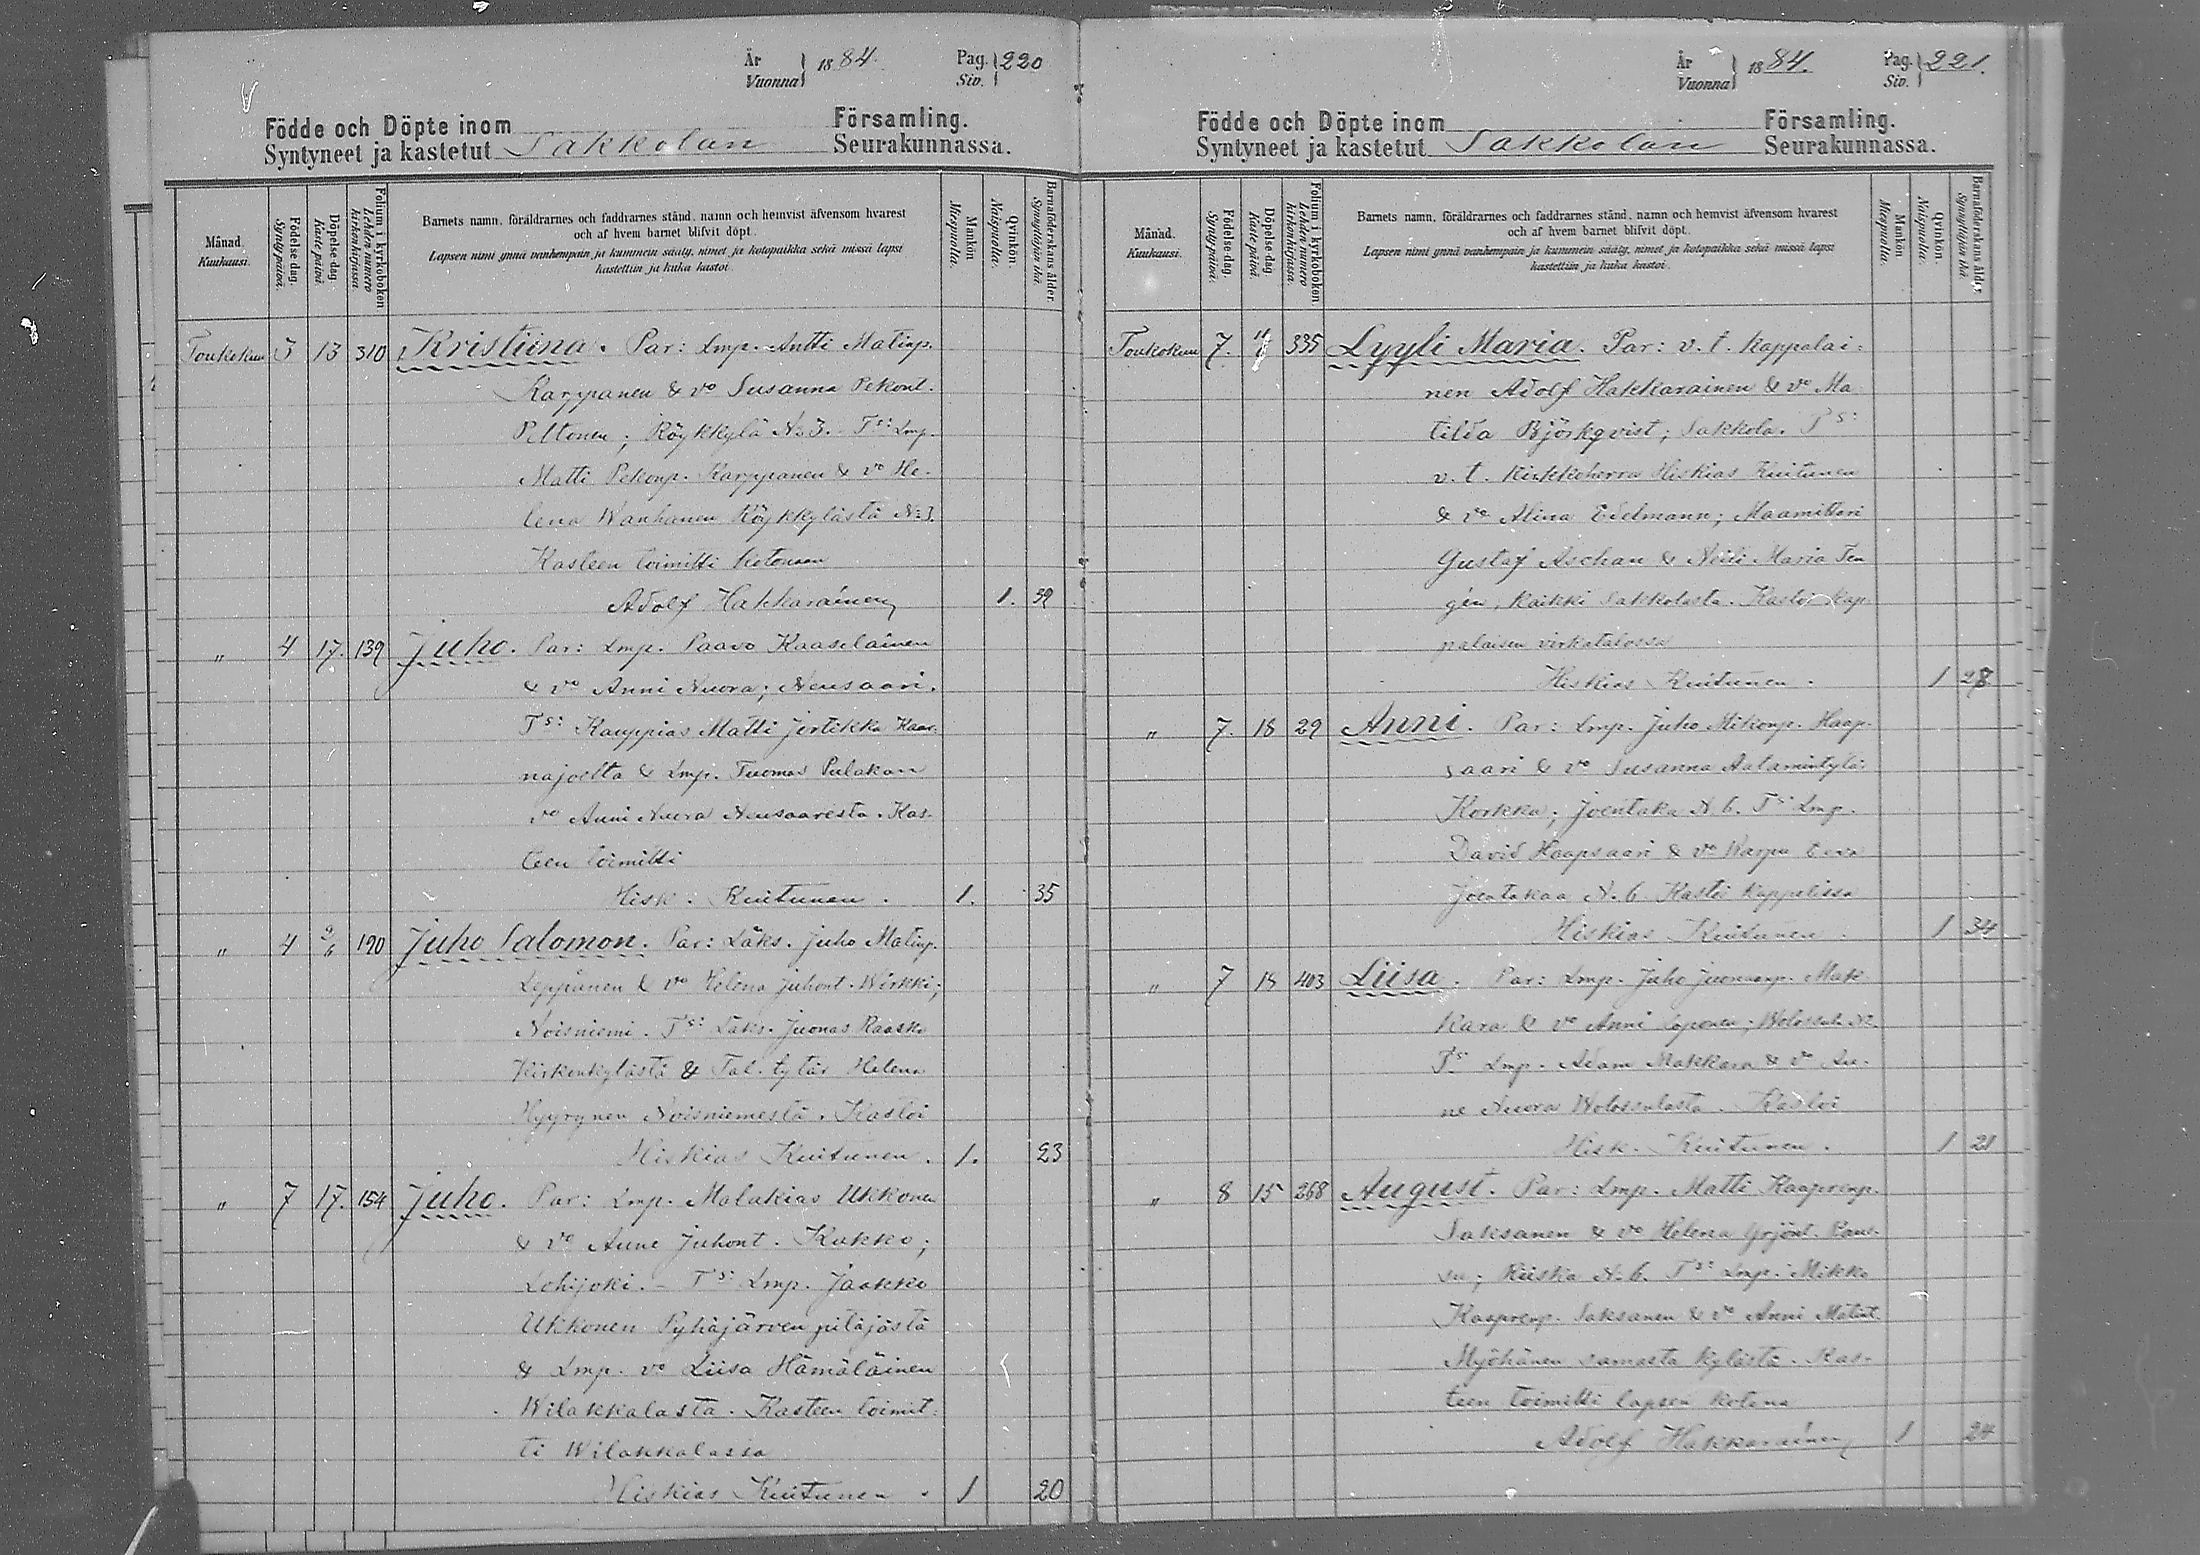 År
Vuonna 1884.
Pag.
Siv. 220
Födde och Döpte inom Församling.
Syntyneet ja kastetut Sakkolan Seurakunnassa.
Månad.
Kuukausi.
Födelse-dag.
Syntypäivä.
Döpelse-dag.
Kastepäivä.
Folium i kyrkoboken
Lehden numero
kirkonkirjassa.
Barnets namn, föräldrarnes och faddrarnes stånd, namn och hemvist äfvensom hvarest
och af hvem barnet blifvit döpt.
Lapsen nimi ynnä vanhempain ja kummein sääty, nimet ja kotopaikka sekä missä lapsi
kastettiin ja kuka kastoi.
Mankön.
Miespuolia.
Qvinkön.
Naispuolia.
Barnaföderskans ålder.
Synnyttäjän ikä.
Toukokuu 3 13 310 Kristiina. Par: Lmp. Antti Matinp.
Karppanen & vo Susanna Pekont.
Peltonen; Röykkylä No 3. Ts: Lmp.
Matti Pekonp. Karppanen & vo He-
lena Wanhanen Röykkylästä No 3.
Kasteen toimitti kotonaan
Adolf Hakkarainen 1. 39
" 4 17. 139 Juho. Par: Lmp. Paavo Kaaselainen
& vo Anni Nuora; Neusaari.
Ts: Kauppias Matti Jertikka Haa-
najoelta & Lmp. Tuomas Pulakan
vo Anni Nuora Neusaaresta. Kas-
teen toimitti
Hisk. Kuitunen. 1. 35
" 4 2/6 190 Juho Salomon. Par: Läks. Juho Matinp.
Leppänen & vo Helena Juhont. Wirkki;
Noisniemi. Ts: Läks. Juonas Raasko
Kirkonkylästä & Tal. tytär Helena
Hyyrynen Noisniemestä. Kastoi
Hiskias Kuitunen. 1. 23
" 7 17. 154 Juho. Par: Lmp. Malakias Ukkonen
& vo Anne Juhont. Kukko;
Lohijoki. - Ts: Lmp. Jaakko
Ukkonen Pyhäjärven pitäjästä
& Lmp. vo Liisa Hämäläinen
Wilakkalasta. Kasteen toimit-
ti Wilakkalassa
Hiskias Kuitunen. 1 20
År
Vuonna 1884.
Pag.
Siv. 221.
Födde och Döpte inom Församling.
Syntyneet ja kastetut Sakkolan Seurakunnassa.
Månad.
Kuukausi.
Födelse-dag.
Syntypäivä.
Döpelse-dag.
Kastepäivä.
Folium i kyrkoboken
Lehden numero
kirkonkirjassa.
Barnets namn, föräldrarnes och faddrarnes stånd, namn och hemvist äfvensom hvarest
och af hvem barnet blifvit döpt.
Lapsen nimi ynnä vanhempain ja kummein sääty, nimet ja kotopaikka sekä missä lapsi
kastettiin ja kuka kastoi.
Mankön.
Miespuolia.
Qvinkön.
Naispuolia.
Barnaföderskans ålder.
Synnyttäjän ikä.
Toukokuu 7. 335 Lyyli Maria. Par: v. t. Kappalai-
nen Adolf Hakkarainen & vo Ma-
tilda Björkqvist; Sakkola. Ts:
v. t. Kirkkoherra Hiskias Kuitunen
& vo Alina Edelmann; Maamittari
Gustaf Aschan & Neiti Maria Ten
gén; kaikki Sakkolasta. Kastoi Kap-
palaisen virkatalossa
Hiskias Kuitunen. 1 28
" 7. 18 29 Anni. Par: Lmp. Juho Mikonp. Haap-
saari & vo Susanna Aatamintytär
Korkka; Joentaka N. 6. Ts: Lmp.
David Haapsaari & vo Warpu
Joentakaa N. 6. Kastoi Kappelissa
Hiskias Kuitunen. 1 34
" 7 18 403 Liisa. Par: Lmp. Juho Juonaanp. Mak-
kara & vo Anni Loponen;
Ts: Lmp. Adam Makkara & vo An-
ne Nuora Wolossulasta. Kastoi
Hisk. Kuitunen. 1 21
" 8 15 268 August. Par: Lmp. Matti Kaaprenp.
Saksanen & vo Helena Yrjönt.
Riiska N. 6. Ts: Lmp. Mikko
Kaaprenp. Saksanen & vo Anni Matint.
Myöhänen samasta kylästä. Kas-
teen toimitti lapsen kotona
Adolf Hakkarainen 1 24